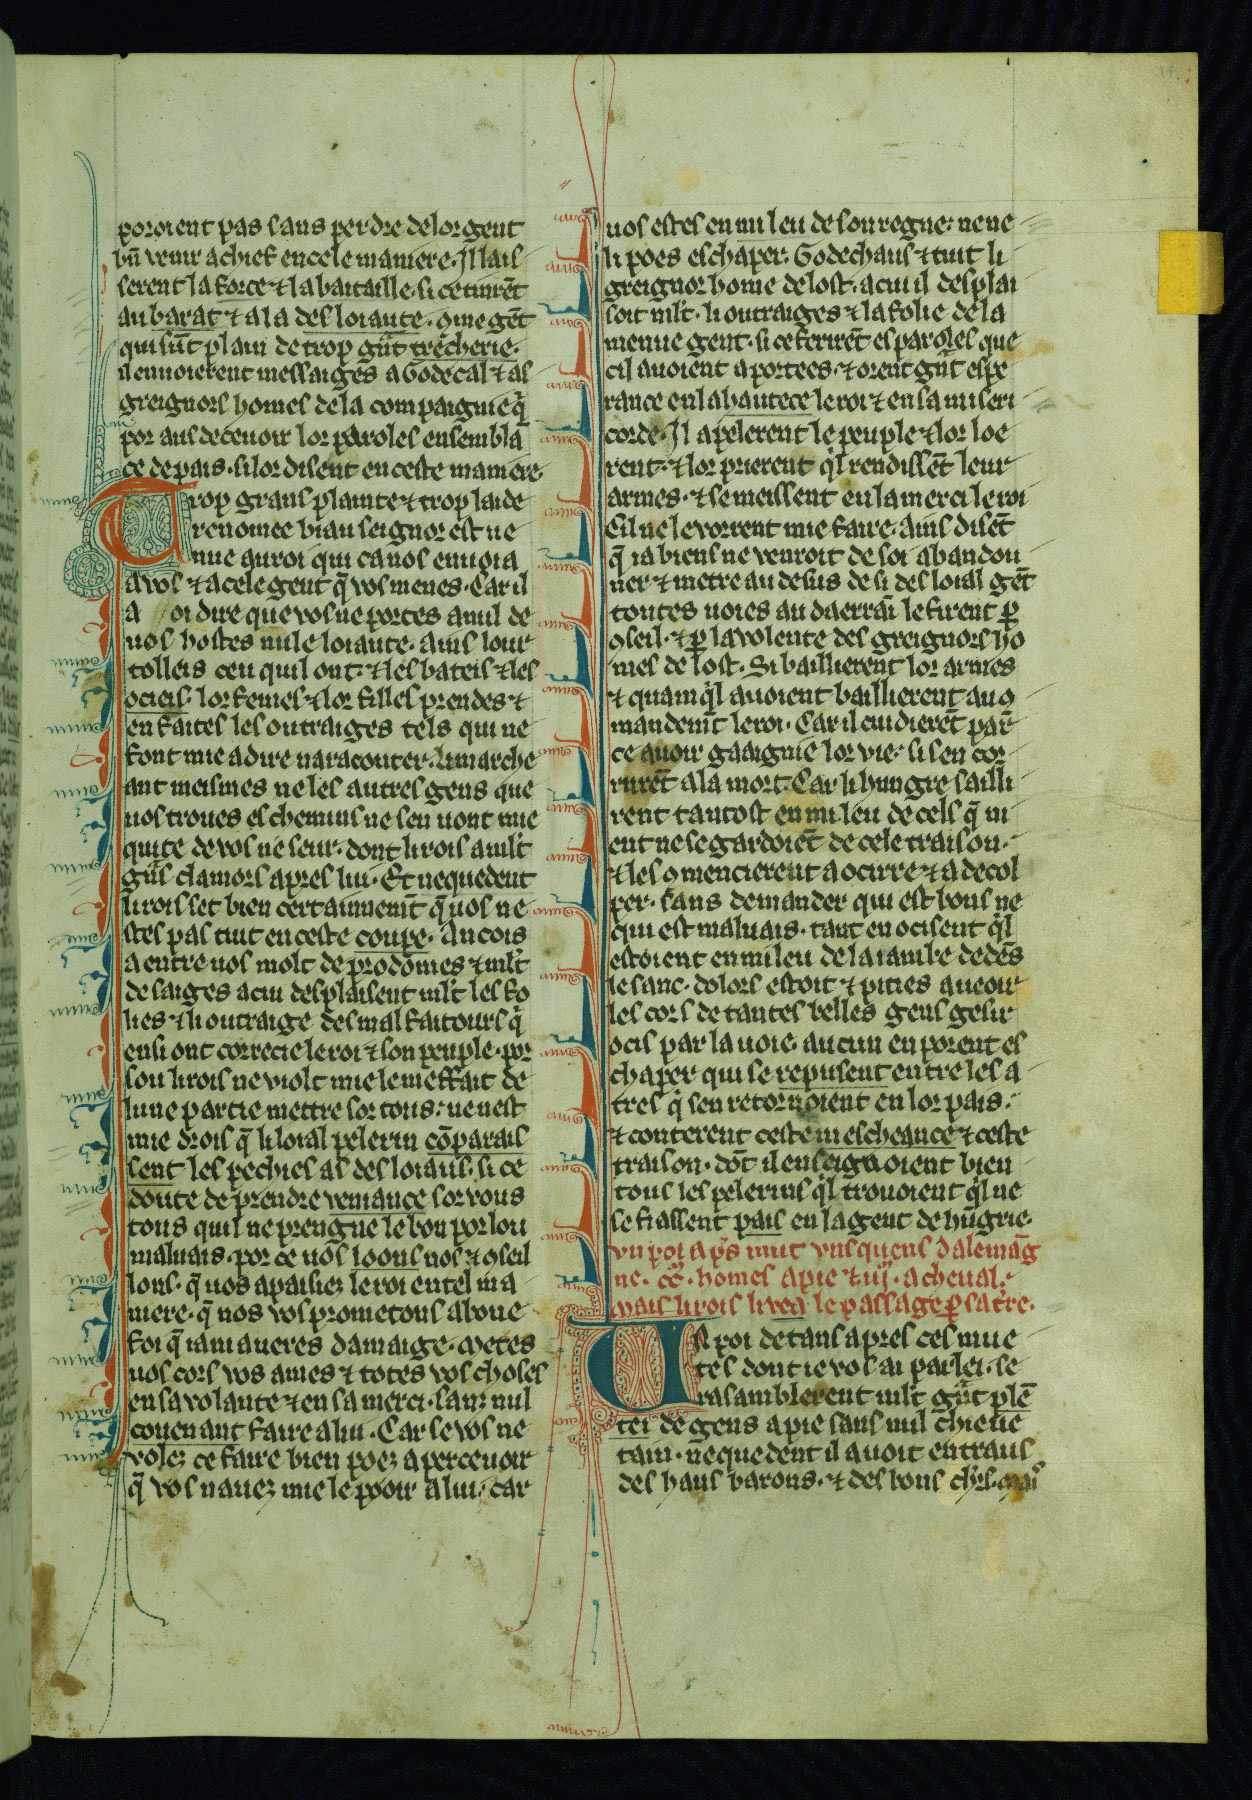 poroient pas sans perdre de lor gent
bñ venir a chief en cele maniere. Il lais
serent la force ⁊ la bataille. si ce tinrẽt
au barat ⁊ a la desloiaute. ꝯme gẽt
qui sũt plain de trop grãt trecherie.
il envoierent messaiges a Godecal ⁊ as
greignors homes de la compaignie q̃
por aus decevoir lor paroles ensembla
ce de pais. si lor disent en ceste maniere.
Trop grans plainte ⁊ trop laide
renomee biau seignor est ve
nue au roi qui ca nos envoia
a vos ⁊ a cele gent q̃ vos menes. Car il
a oi dire que vos ne portes a nul de
vos hostes nule loiaute. ains lour
tolleis ceu quil ont. ⁊ les bateis ⁊ les
ocieis. lor femes ⁊ lor filles prendes ⁊
en faites les outraiges tels qui ne
font mie a dire na raconter. li marche
ant meismes ne les autres gens que
vos troves es chemins ne sen vont mie
quite de vos ne seur. dont li rois a mlt
grãs clamors apres lui. Et nequedent
li rois set bien certainnemt q̃ vos ne
stes pas tuit en ceste coupe. Ancois
a entre vos molt de prodomes ⁊ mlt
de saiges a cui desplaisent mlt les fo
lies ⁊ li outraige des malfaitours q̃
ensi ont correcie le roi ⁊ son peuple. por
sou li rois ne violt mie le meffait de
lune partie mettre sor tous. ne nest
mie drois q̃ li loial pelerin cõparais
sent les pechies as desloiaus. si ce
doute de prendre veniance sor vous
tous quil ne prengne le bon por lou
malvais. por ce vos loons nos ⁊ ꝯseil
lons. q̃ vos apaisiez le roi en tel ma
niere. q̃ nos vos prometons a bone
foi q̃ ia ni aueres damaige. Metes
vos cors vos armes ⁊ totes vos choses
en sa volante ⁊ en sa merci. sanz nul
covenant faire a lui. Car se vos ne
volez ce faire bien poez apercevoir
q̃ vos navez mie le pooir a lui. car
vos estes en mi leu de son regne. ne ne
li poes eschaper. Godechaus ⁊ tuit li
greignor home de lost. a cui il desplai
soit mlt. li outraiges ⁊ la folie de la
menue gent. si ce ferirẽt es paroles que
cil avoient aportees. ⁊ orent grãt espe
rance en la hautece le roi ⁊ en sa miseri
corde. Il apelerent le peuple ⁊ lor loe
rent. ⁊ lor prierent q̃l rendissẽt leur
armes. ⁊ se meissent en la merci le roi
Cil ne le vorrent mie faire. ains disẽt
q̃ ia biens ne venroit de soi abandon
ner ⁊ metre au desus de si desloial gẽt
toutes voies au daerrai le firent ꝑ
ꝯseil. ⁊ ꝑ la volente des greignors ho
mes de lost. Si baillierent lor armes
⁊ quamq̃l avoient baillierent au ꝯ
mandemt le roi. Car il cuidierẽt par
ce avoir gaaignie lor vie. si sen cor
rurẽt a la mort. Car li hungre sailli
rent tantost en mi leu de cels q̃ ni
ent ne se gardoiẽt de cele traison.
⁊ les ꝯmencierent a ocirre ⁊ a decol
per. sans demander qui est bons ne
qui est malvais. tant en ocisent q̃l
estoient en mi leu de la iambe dedẽs
le sanc. dolors estoit ⁊ pities a veoir
les cors de tantes belles gens gesir
ocis par la voie. aucun en porent es
chaper qui se repusent entre les a
tres q̃ sen retornoient en lor pais.
⁊ conterent ceste mescheance ⁊ ceste
traison. dõt il enseignoient bien
tous les pelerins q̃l trovoient q̃l ne
se fiassent pais en la gent de hũgrie.
vn poi ap̃s mut vns quens dalemãg
ne. homes a pie ⁊ a cheval.
Mais li rois li vea le passage ꝑ sa t̃re.
Un poi de tans apres ces mue
tes dont ie vos ai parlei. se
rasamblerent mlt grãt plẽ
tei de gens a pie sans nul chieue
tain. nequedent il avoit entraus
des haus barons. ⁊ des bons chrs.